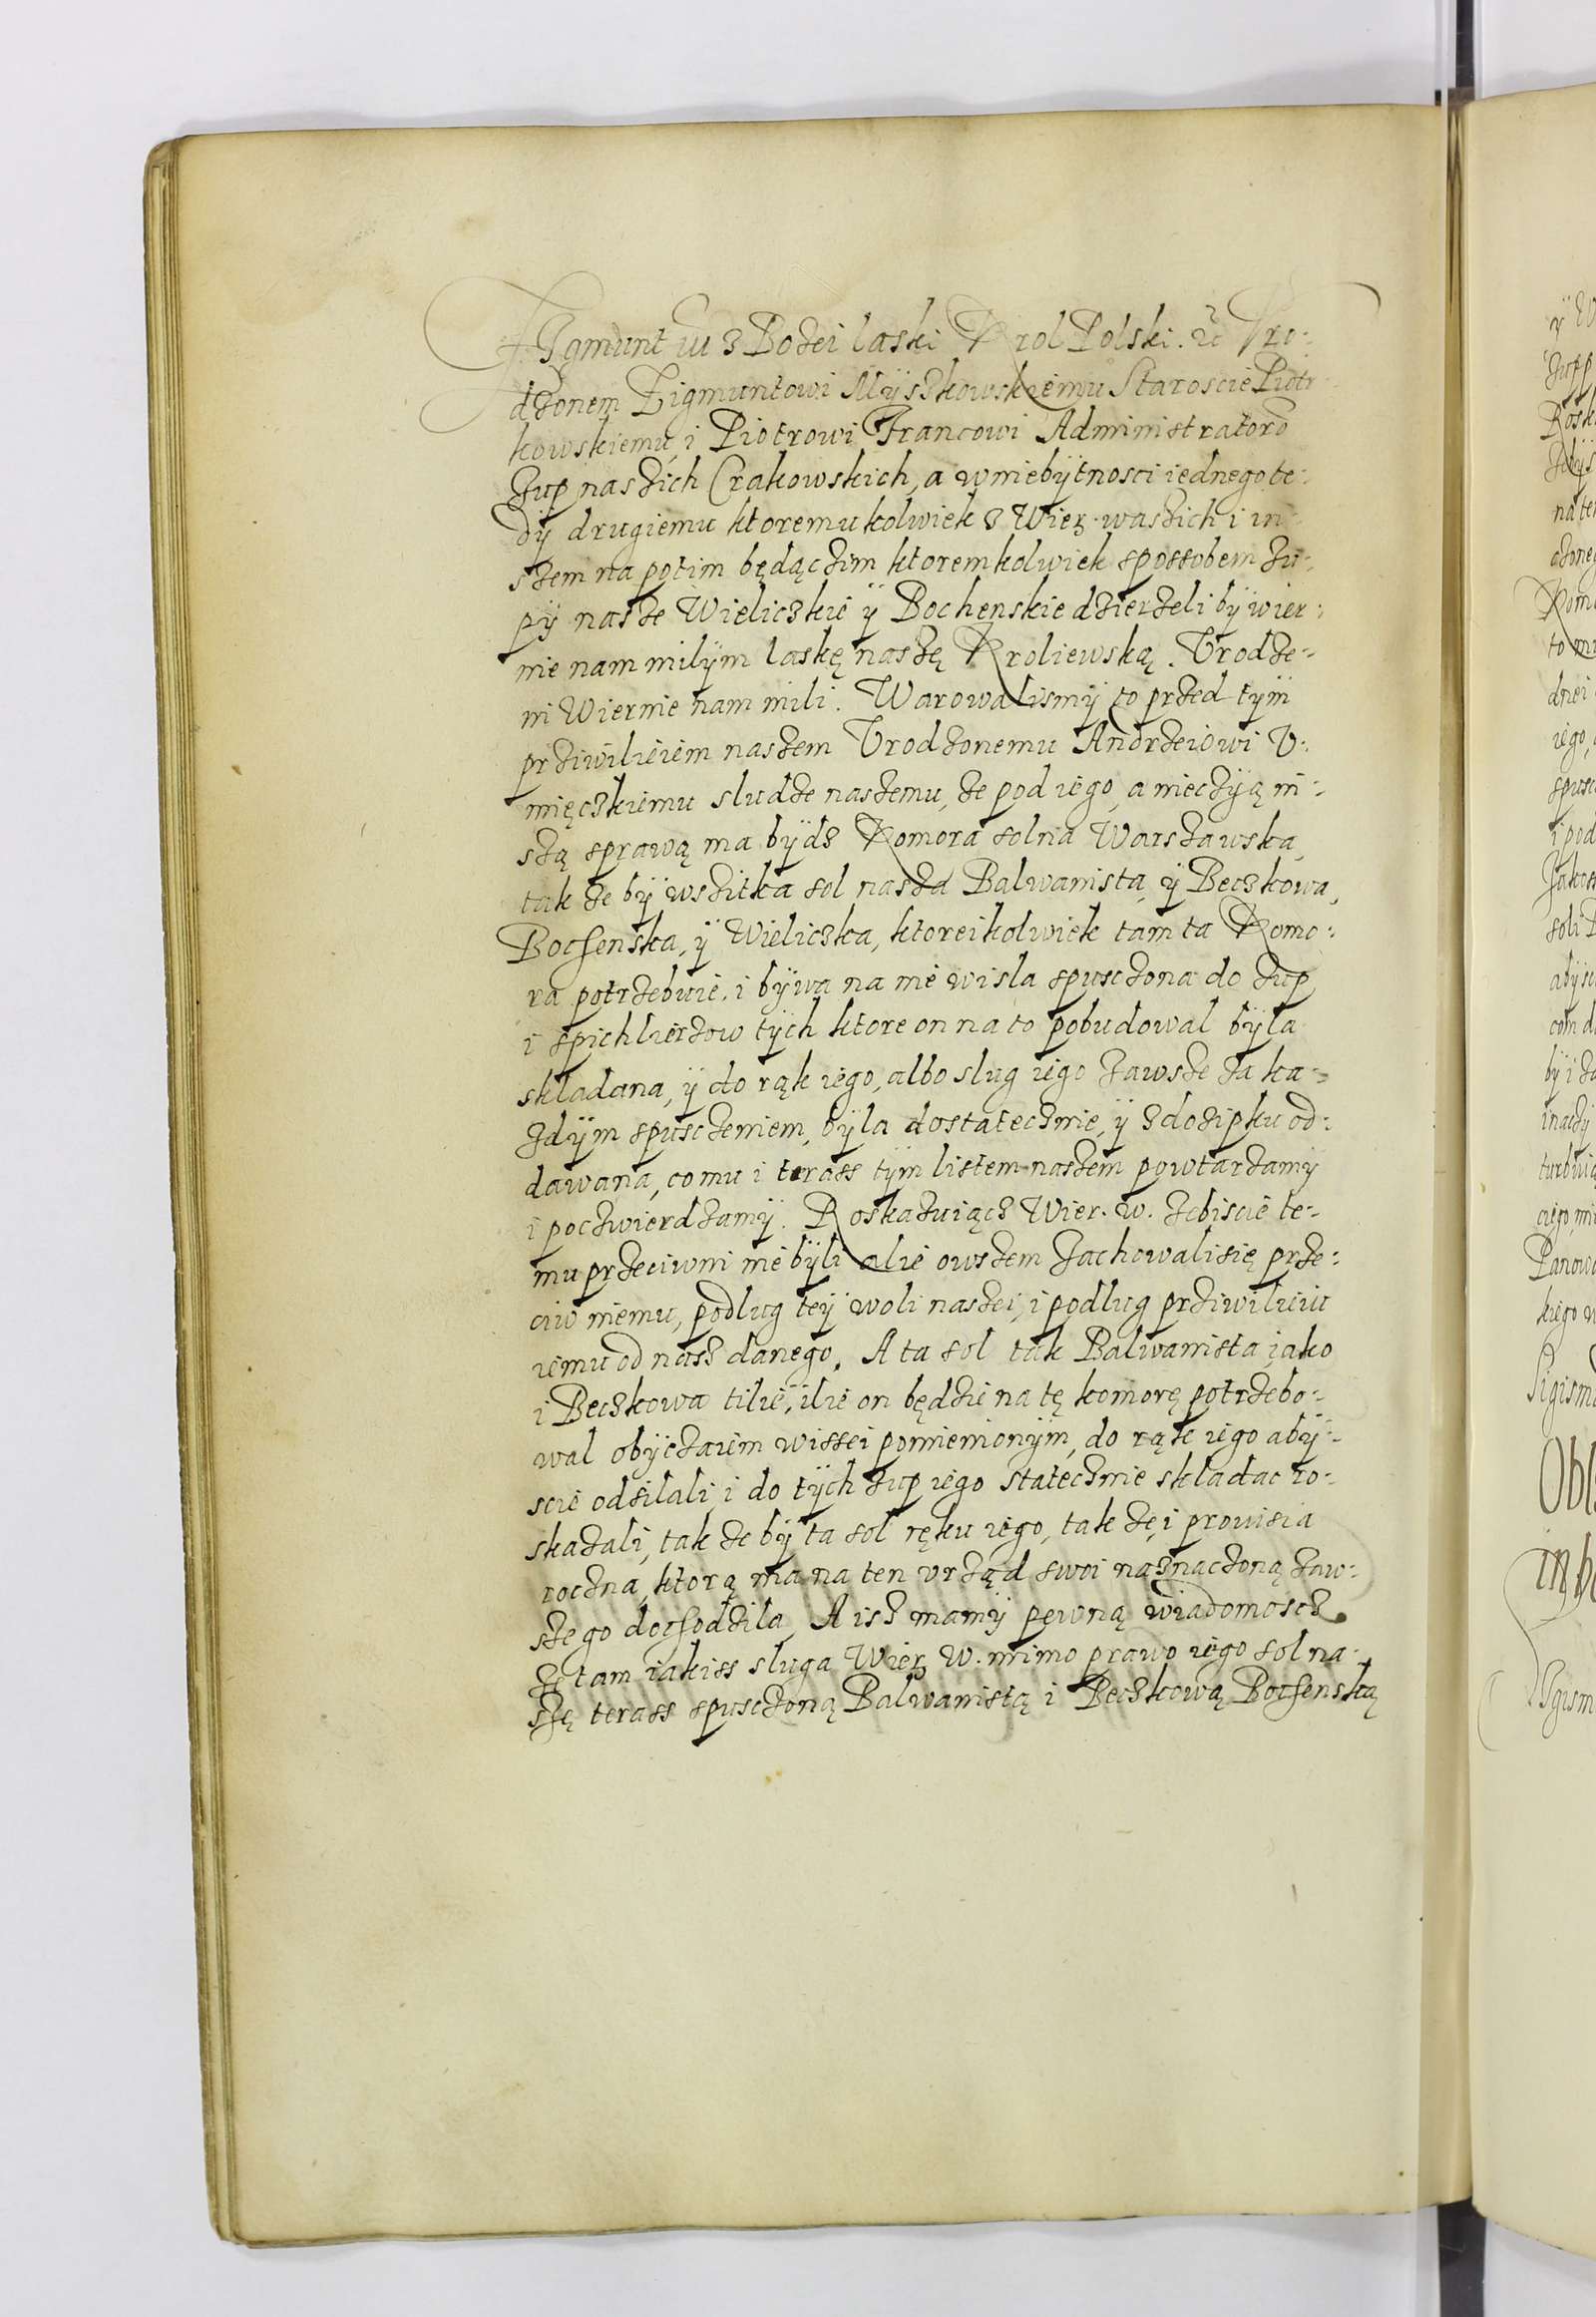 Zÿgmunt iii z Bożei laski Krol Polski. etc Vro-
dzonem Zigmuntowi Mÿszkowskiemu Staroscie Piotr
kowskiemu, i Piotrowi Francowi Administratorō
Zup naszich Crakowskich, a w niebÿtnosci iednego te-
dÿ drugiemu ktoremukolwiek z Wier. waszich i in
szem na potim będączim ktoremkolwiek spossobem zu-
pÿ nasze Wieliczkie ÿ Bochenskie dzierzeli bÿ wier-
nie nam milÿm laskę naszę Kroliewską. Vrodze-
ni Wiernie nam mili. Warowalismÿ to przed tÿm
prziwilieiem naszem Vrodzonemu Andrzeiowi V-
mięczkiemu sludze naszemu, ze pod iego, a nieczÿią in-
szą sprawą ma bÿdz Komora solna Warszawska,
tak ze bÿ wszitka sol nasza Balwanista, ÿ Beczkowa,
Bochenska, ÿ Wieliczka, ktoreikolwiek tam ta Komo-
ra potrzebuie, i bÿwa na nie wisla spusczona do zup
i spichlierzow tÿch ktore on na to pobudowal bÿla
skladana, ÿ do rąk iego, albo slug iego zawsze za ka-
zdÿm spusczeniem, bÿla dostatecznie, ÿ zdozipku od-
dawana, co mu i terass tÿm listem naszem powtarzamÿ
i poczwierdzamÿ. Roskazuiącz Wier. w. zebiscie te-
mu przeciwni nie bÿli alie owszem zachowali się prze-
ciw niemu, podlug teÿ woli naszei, i podlug prziwilieiu
iemu od nasz danego. A ta sol tak Balwanista iako
i Beczkowa tilie, ilie on będzie na tę komorę potrzebo-
wal obÿczaiem wissei pomienionÿm, do rąk iego abÿ-
scie odsilali i do tÿch zup iego statecznie skladac ro-
skazali, tak ze bÿ ta sol ręku iego, tak zę i prowisia
roczna, ktorą ma na ten vrząd swoi naznaczoną zaw-
sze go dochodzila, A isz mamÿ pewną wiadomoscz
ze tam iakiss sluga Wier. W. mimo prawo iego sol na-
szę terass spusczoną Balwanistą i Beczkową Bochenską